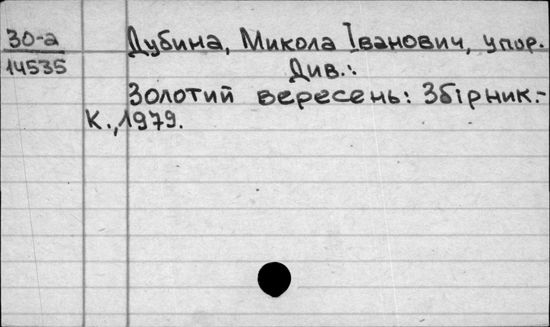 30-а Дубина, Микола Іванович, упор.
14535 Див.:
Золотий вересень: Збірник.-
К., 1979.